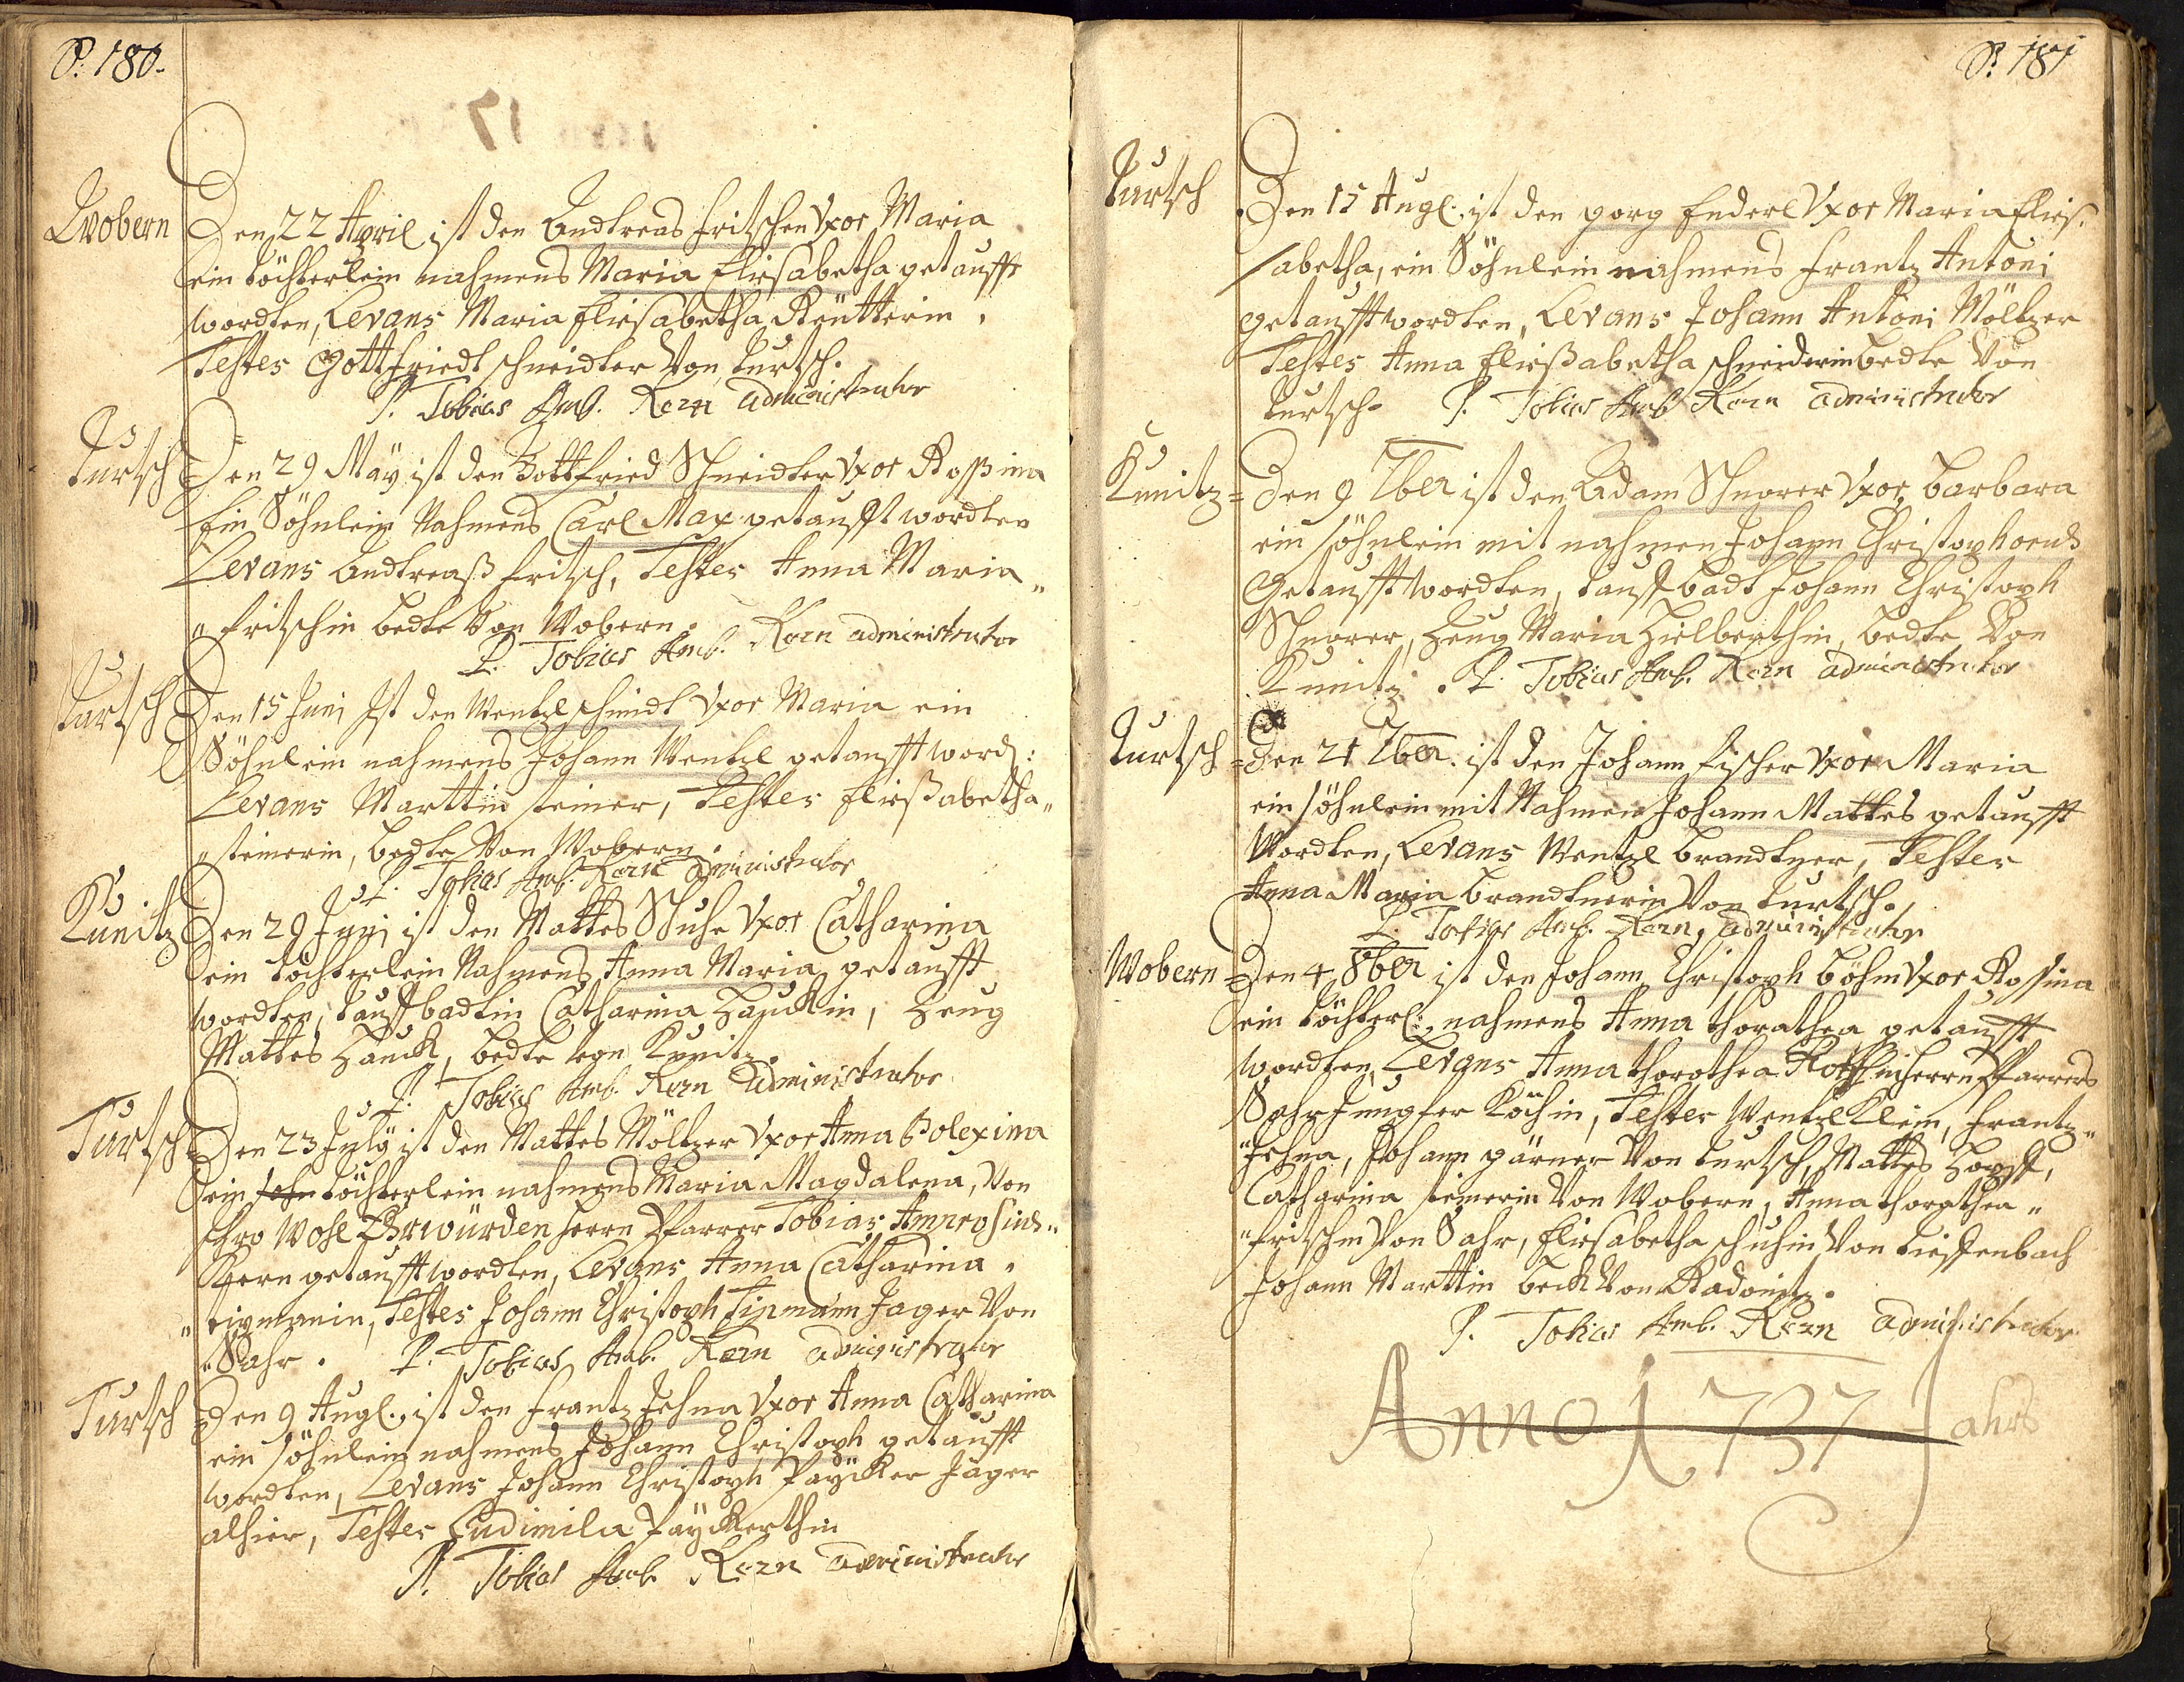 P. 180.
Wobern
Den 22 April ist den Andtreas Fritschen Vxor Maria
ein töchterlein nahmens Maria Eliesabetha getaufft
wordten, Levans Maria Eliesabetha Reütterin,
Testes Gottfriedt schneidter Von turtsch.
P. Tobias Amb. Kern administrator
turtsch
Den 29 Maÿ ist den Gottfried Schneidter Vxor Roßina
Ein Söhnlein Nahmens Carl Max getaufft wordten
Levans Andtreaß Fritsch, Testes Anna Maria„
„Fritschin bedte Von Wobern.
P. Tobias Amb. Kern administrator
turtsch
Den 15 Juni Ist den Wentzl schmidt Vxor Maria ein
Söhnlein nahmens Johann Wentzl getaufft word:
Levans Marttin steiner, Testes Eließabetha„
„steinerin, bedte Von Wobern.
P. Tobias Amb. Kern administrator
Kunitz
Den 29 Juni ist den Mattes Schuhe Vxor Catharina
ein töchterlein Nahmens Anna Maria getaufft
wordten, tauffbadtin Catharina Hauckin, Zeug
Mattes Hauck, bedte Kunitz.
P. Tobias Amb. Kern administrator
Turtsch
Den 23 Julÿ ist den Mattes Möltzer Vxor Anna Polexina
ein sohn töchterlein nahmens Maria Magdalena, Von
Ihro Wohl Ehrwürden herrn Pfarrer Tobias Ambrosius„
Kern getaufft wordten, Levans Anna Catharina„
„tipmanin, Testes Johann Christoph Tipmann Jager Von
„Sahr. P. Tobias Amb. Kern administrator
Turtsch
Den 9 Augl. ist den Frantz Jehna Vxor Anna Catharina
ein söhnlein nahmens Johann Christoph getaufft
wordten, Levans Johann Christoph Paÿcker Jäger
alhier, Testes Ludimila Paÿckerthin
P. Tobias Amb. Kern administrator
P. 181
Turtsch
Den 15 Augl. ist den gorg Enderl Vxor Maria Elies.
/abetha, ein Söhnlein nahmens Frantz Antoni
getaufft wordten, Levans Johann Antoni Möltzer
Testes Anna Eließabetha schneiderin bedte Von
turtsch. P. Tobias Amb. Kern administrator
Kunitz=
Den 9 7ber ist den Adam Schnorer Vxor barbara
ein söhnlein mit nahmen Johann Christophorus
Getaufft wordten, tauffbadt Johann Christoph
Schnorer, Zeug Maria Hielberthin, bedte Von
Kunitz. P. Tobias Amb. Kern administrator
Turtsch=
Den 21 7ber. ist den Johann Fischer Vxor Maria
ein söhnlein mit Nahmen Johann Mattes getaufft
Wordten, Levans Wentzl brandtner, Testes
Anna Maria brandtnerin Von turtsch.
P. Tobias Amb. Kern, administrator
Wobern
Den 4 8ber ist den Johann Christoph böhm Vxor Rossina
ein töchterl: nahmens Anna thorathea getaufft
wordten, Levans Anna thorothea herrn Pfarrers
Sahr Jungfer Köchin, Testes Wentzl Klein, Frantz„
„Jehna, Johann gärner Von turtsch, Mattes Hopff,
Catharina steinerin Von Wobern, Anna thorathea„
„Fritschin Von Sahr, Eliesabetha schuhin Von tieffenbach
Johann Marttin beck Von Radonitz.
P. Tobias Amb. Kern administrator
Anno 1737 Jahrs